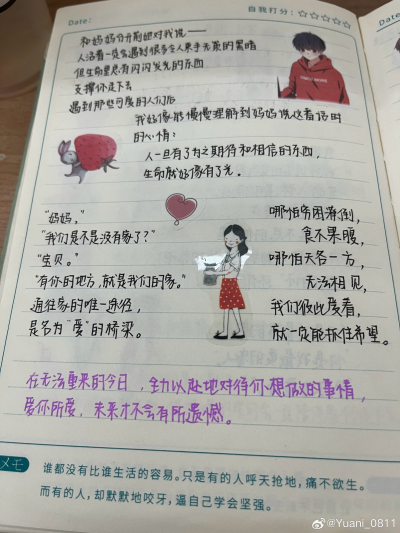 Date:
自我打分：☆☆☆☆☆
和妈妈分开前她对我说——
人活着一定会遇到很多令人束手无策的黑暗
但生命里总有闪闪发光的东西
支撑你走下去
遇到那些可爱的人们后
我好像能慢慢理解到妈妈说这番话时
的心情：
人一旦有了为之期待和相信的东西，
生命就好像有了光。
“妈妈，”
“我们是不是没有家了？”
“宝贝。”
“有你的地方，就是我们的家。”
通往家的唯一途径，
是名为“爱”的桥梁。
哪怕穷困潦倒，
食不果腹，
哪怕天各一方，
无法相见，
我们彼此爱着，
就一定能抓住希望。
在无法重来的今日，全力以赴地对待你想做的事情，
爱你所爱，未来才不会有所遗憾。
メモ
谁都没有比谁生活的容易。只是有的人呼天抢地，痛不欲生。
而有的人，却默默地咬牙，逼自己学会坚强。
@Yuani_0811